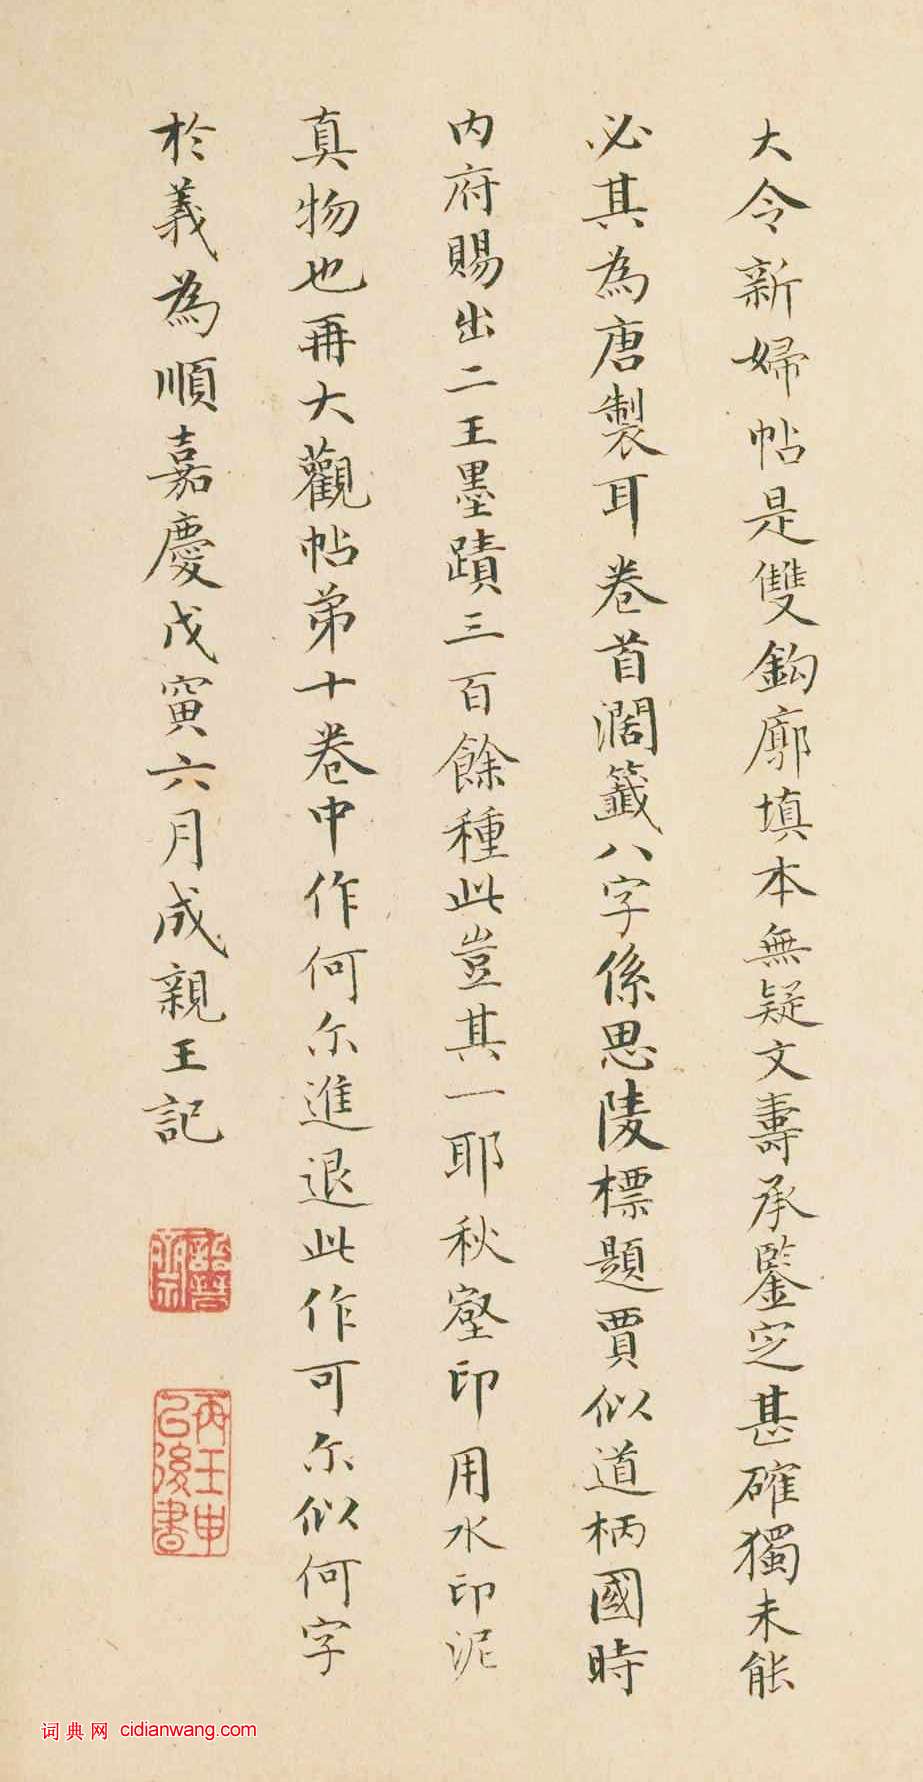 大令新婦帖是雙鈎廓填本無疑文壽承鑒定甚確獨未能
必其為唐製耳卷首濶籤八字係思陵標題賈似道柄國時
内府賜出二王墨蹟三百餘種此豈其一耶秋壑印用水印泥
真物也再大觀帖弟十卷中作何尔進退此作可尔似何字
於義為順嘉慶戊寅六月成親王記
詒晉齋
再壬申已後書
词典网 cidianwang.com